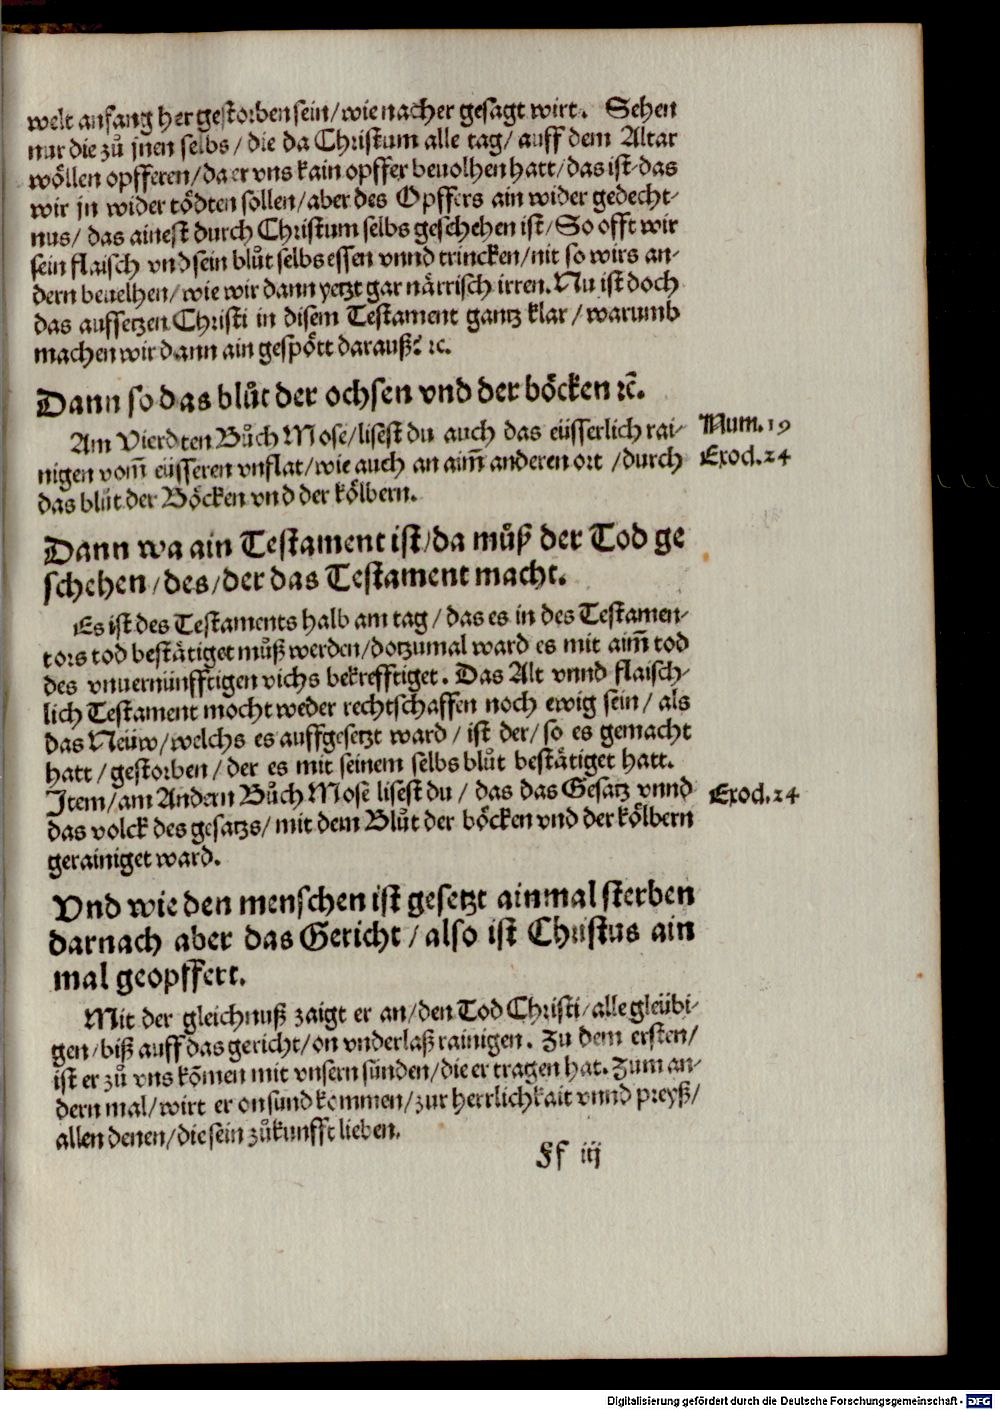 welt anfang her gestorben sein/wie nacher gesagt wirt. Sehen
nur die zů jnen selbs/ die da Christum alle tag/ auff dem Altar
wöllen opfferen/da er vns kain opffer beuolhen hatt/das ist das
wir jn wider tödten sollen/aber des Opffers ain wider gedecht-
nus/ das ainest durch Christum selbs geschehen ist/So offt wir
sein flaisch vnd sein blůt selbs essen vnnd trincken/nit so wirs an-
dern beuelhen/wie wir dann yetzt gar närrisch irren. Nu ist doch
das auffsetzen Christi in disem Testament gantz klar/warumb
machen wir dann ain gespött darauß? ꝛc.
Dann so das blůt der ochsen vnd der böcken ꝛc̃.
Am Vierdten Bůch Mose/lisest du auch das eüsserlich rai-
Num. 19
nigen vom̃ eüsseren vnflat/wie auch an aim̃ anderen ort /durch
Exod. 24
das blůt der Böcken vnd der kölbern.
Dann wa ain Testament ist/da můß der Tod ge
schehen/des/der das Testament macht.
Es ist des Testaments halb am tag/das es in des Testamen-
tors tod bestätiget můß werden/dotzumal ward es mit aim̃ tod
des vnuernünfftigen vichs bekrefftiget. Das Alt vnnd flaisch-
lich Testament mocht weder rechtschaffen noch ewig sein/ als
das Neüw/welchs es auffgesetzt ward/ ist der/so es gemacht
hatt/gestorben/der es mit seinem selbs blůt bestätiget hatt.
Item/am Andern Bůch Mose lisest du/ das das Gesatz vnnd
Exod. 24
das volck des gesatzs/mit dem Blůt der böcken vnd der kölbern
gerainiget ward.
Vnd wie den menschen ist gesetzt ainmal sterben
darnach aber das Gericht/also ist Christus ain
mal geopffert.
Mit der gleichnuß zaigt er an/den Tod Christi/alle gleübi-
gen/biß auff das gericht/on vnderlaß rainigen. Zu dem ersten/
ist er zů vns kom̃en mit vnsern sünden/die er tragen hat. Zum an-
dern mal/wirt er on sünd kommen/zur herrlichkait vnnd preyß/
allen denen/die sein zůkunfft lieben.
Ff iij
Digitalisierung gefördert durch die Deutsche Forschungsgemeinschaft - DFG